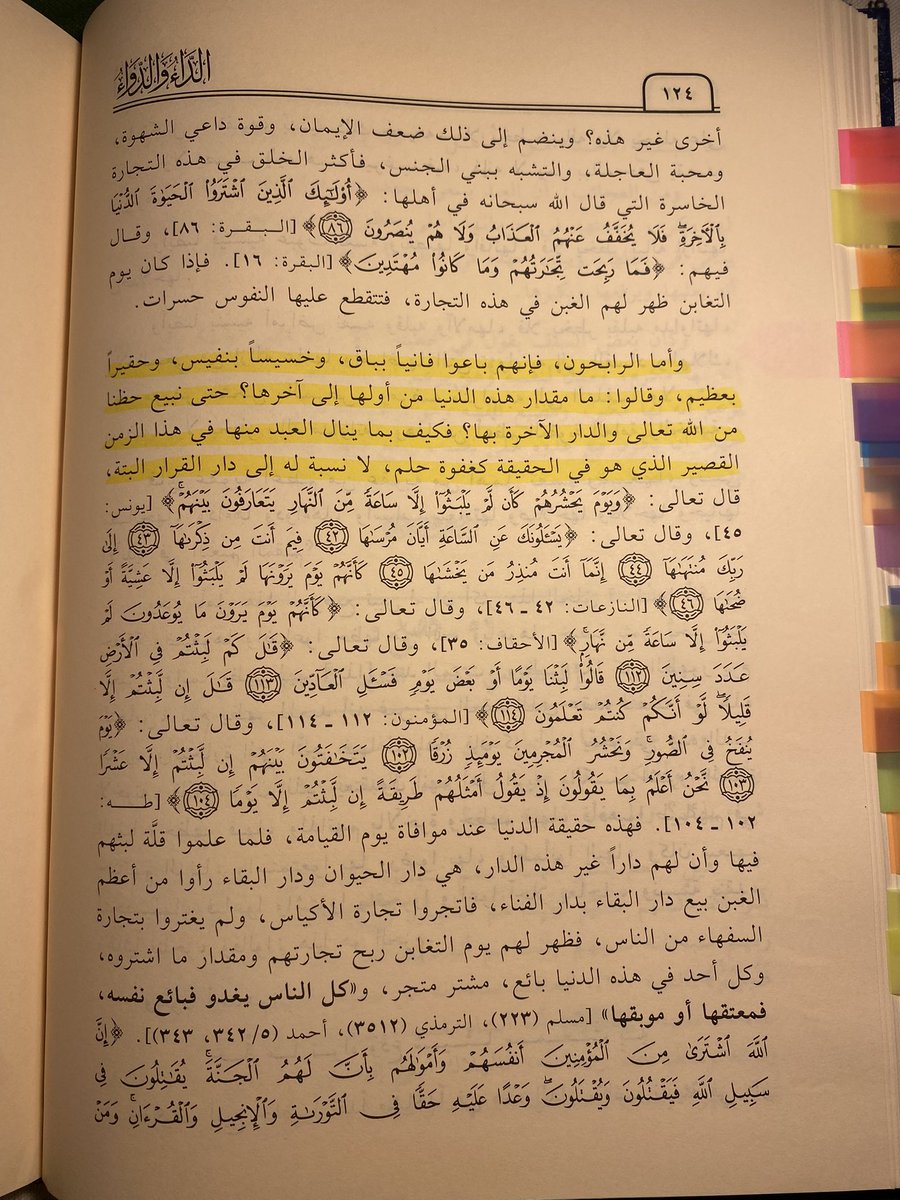 الدَّاءُ وَالدَّوَاءُ
١٢٤
أخرى غير هذه؟ وينضم إلى ذلك ضعف الإيمان، وقوة داعي الشهوة،
ومحبة العاجلة، والتشبه ببني الجنس، فأكثر الخلق في هذه التجارة
الخاسرة التي قال الله سبحانه في أهلها: ﴿أُوْلَٰٓئِكَ ٱلَّذِينَ ٱشْتَرَوُا۟ ٱلْحَيَوٰةَ ٱلدُّنْيَا
بِٱلْءَاخِرَةِۖ فَلَا يُخَفَّفُ عَنْهُمُ ٱلْعَذَابُ وَلَا هُمْ يُنصَرُونَ ٨٦﴾ [البـقـرة: ٨٦]، وقـال
فيهم: ﴿فَمَا رَبِحَت تِّجَٰرَتُهُمْ وَمَا كَانُوا۟ مُهْتَدِينَ﴾ [البقرة: ١٦]. فإذا كان يوم
التغابن ظهر لهم الغبن في هذه التجارة، فتتقطع عليها النفوس حسرات.
وأما الرابحون، فإنهم باعوا فانياً بباق، وخسيساً بنفيس، وحقيراً
بعظيم، وقالوا: ما مقدار هذه الدنيا من أولها إلى آخرها؟ حتى نبيع حظنا
من الله تعالى والدار الآخرة بها؟ فكيف بما ينال العبد منها في هذا الزمن
القصير الذي هو في الحقيقة كغفوة حلم، لا نسبة له إلى دار القرار البتة،
قال تعالى: ﴿وَيَوْمَ يَحْشُرُهُمْ كَأَن لَّمْ يَلْبَثُوٓا۟ إِلَّا سَاعَةً مِّنَ ٱلنَّهَارِ يَتَعَارَفُونَ بَيْنَهُمْۚ﴾ [يونس:
٤٥]، وقال تعالى: ﴿يَسْـَٔلُونَكَ عَنِ ٱلسَّاعَةِ أَيَّانَ مُرْسَىٰهَا ٤٢ فِيمَ أَنتَ مِن ذِكْرَىٰهَآ ٤٣ إِلَىٰ
رَبِّكَ مُنتَهَىٰهَآ ٤٤ إِنَّمَآ أَنتَ مُنذِرُ مَن يَخْشَىٰهَا ٤٥ كَأَنَّهُمْ يَوْمَ يَرَوْنَهَا لَمْ يَلْبَثُوٓا۟ إِلَّا عَشِيَّةً أَوْ
ضُحَىٰهَا ٤٦﴾ [النازعات: ٤٢ ـ ٤٦]، وقال تعالى: ﴿كَأَنَّهُمْ يَوْمَ يَرَوْنَ مَا يُوعَدُونَ لَمْ
يَلْبَثُوٓا۟ إِلَّا سَاعَةً مِّن نَّهَارٍۚ﴾ [الأحقاف: ٣٥]، وقال تعالى: ﴿قَٰلَ كَمْ لَبِثْتُمْ فِى ٱلْأَرْضِ
عَدَدَ سِنِينَ ١١٢ قَالُوا۟ لَبِثْنَا يَوْمًا أَوْ بَعْضَ يَوْمٍ فَسْـَٔلِ ٱلْعَآدِّينَ ١١٣ قَٰلَ إِن لَّبِثْتُمْ إِلَّا
قَلِيلًاۖ لَّوْ أَنَّكُمْ كُنتُمْ تَعْلَمُونَ ١١٤﴾ [المؤمنون: ١١٢ ـ ١١٤]، وقال تعالى: ﴿يَوْمَ
يُنفَخُ فِى ٱلصُّورِۚ وَنَحْشُرُ ٱلْمُجْرِمِينَ يَوْمَئِذٍ زُرْقًا ١٠٢ يَتَخَٰفَتُونَ بَيْنَهُمْ إِن لَّبِثْتُمْ إِلَّا عَشْرًا
١٠٣ نَّحْنُ أَعْلَمُ بِمَا يَقُولُونَ إِذْ يَقُولُ أَمْثَلُهُمْ طَرِيقَةً إِن لَّبِثْتُمْ إِلَّا يَوْمًا ١٠٤﴾ [طـه:
١٠٢ ـ ١٠٤]. فهذه حقيقة الدنيا عند موافاة يوم القيامة، فلما علموا قلَّة لبثهم
فيها وأن لهم داراً غير هذه الدار، هي دار الحيوان ودار البقاء رأوا من أعظم
الغبن بيع دار البقاء بدار الفناء، فاتجروا تجارة الأكياس، ولم يغتروا بتجارة
السفهاء من الناس، فظهر لهم يوم التغابن ربح تجارتهم ومقدار ما اشتروه،
وكل أحد في هذه الدنيا بائع، مشتر متجر، و«كل الناس يغدو فبائع نفسه،
فمعتقها أو موبقها» [مسلم (٢٢٣)، الترمذي (٣٥١٢)، أحمد (٣٤٢/٥، ٣٤٣)]. ﴿إِنَّ
ٱللَّهَ ٱشْتَرَىٰ مِنَ ٱلْمُؤْمِنِينَ أَنفُسَهُمْ وَأَمْوَٰلَهُم بِأَنَّ لَهُمُ ٱلْجَنَّةَۚ يُقَٰتِلُونَ فِى
سَبِيلِ ٱللَّهِ فَيَقْتُلُونَ وَيُقْتَلُونَۖ وَعْدًا عَلَيْهِ حَقًّا فِى ٱلتَّوْرَىٰةِ وَٱلْإِنجِيلِ وَٱلْقُرْءَانِۚ وَمَنْ